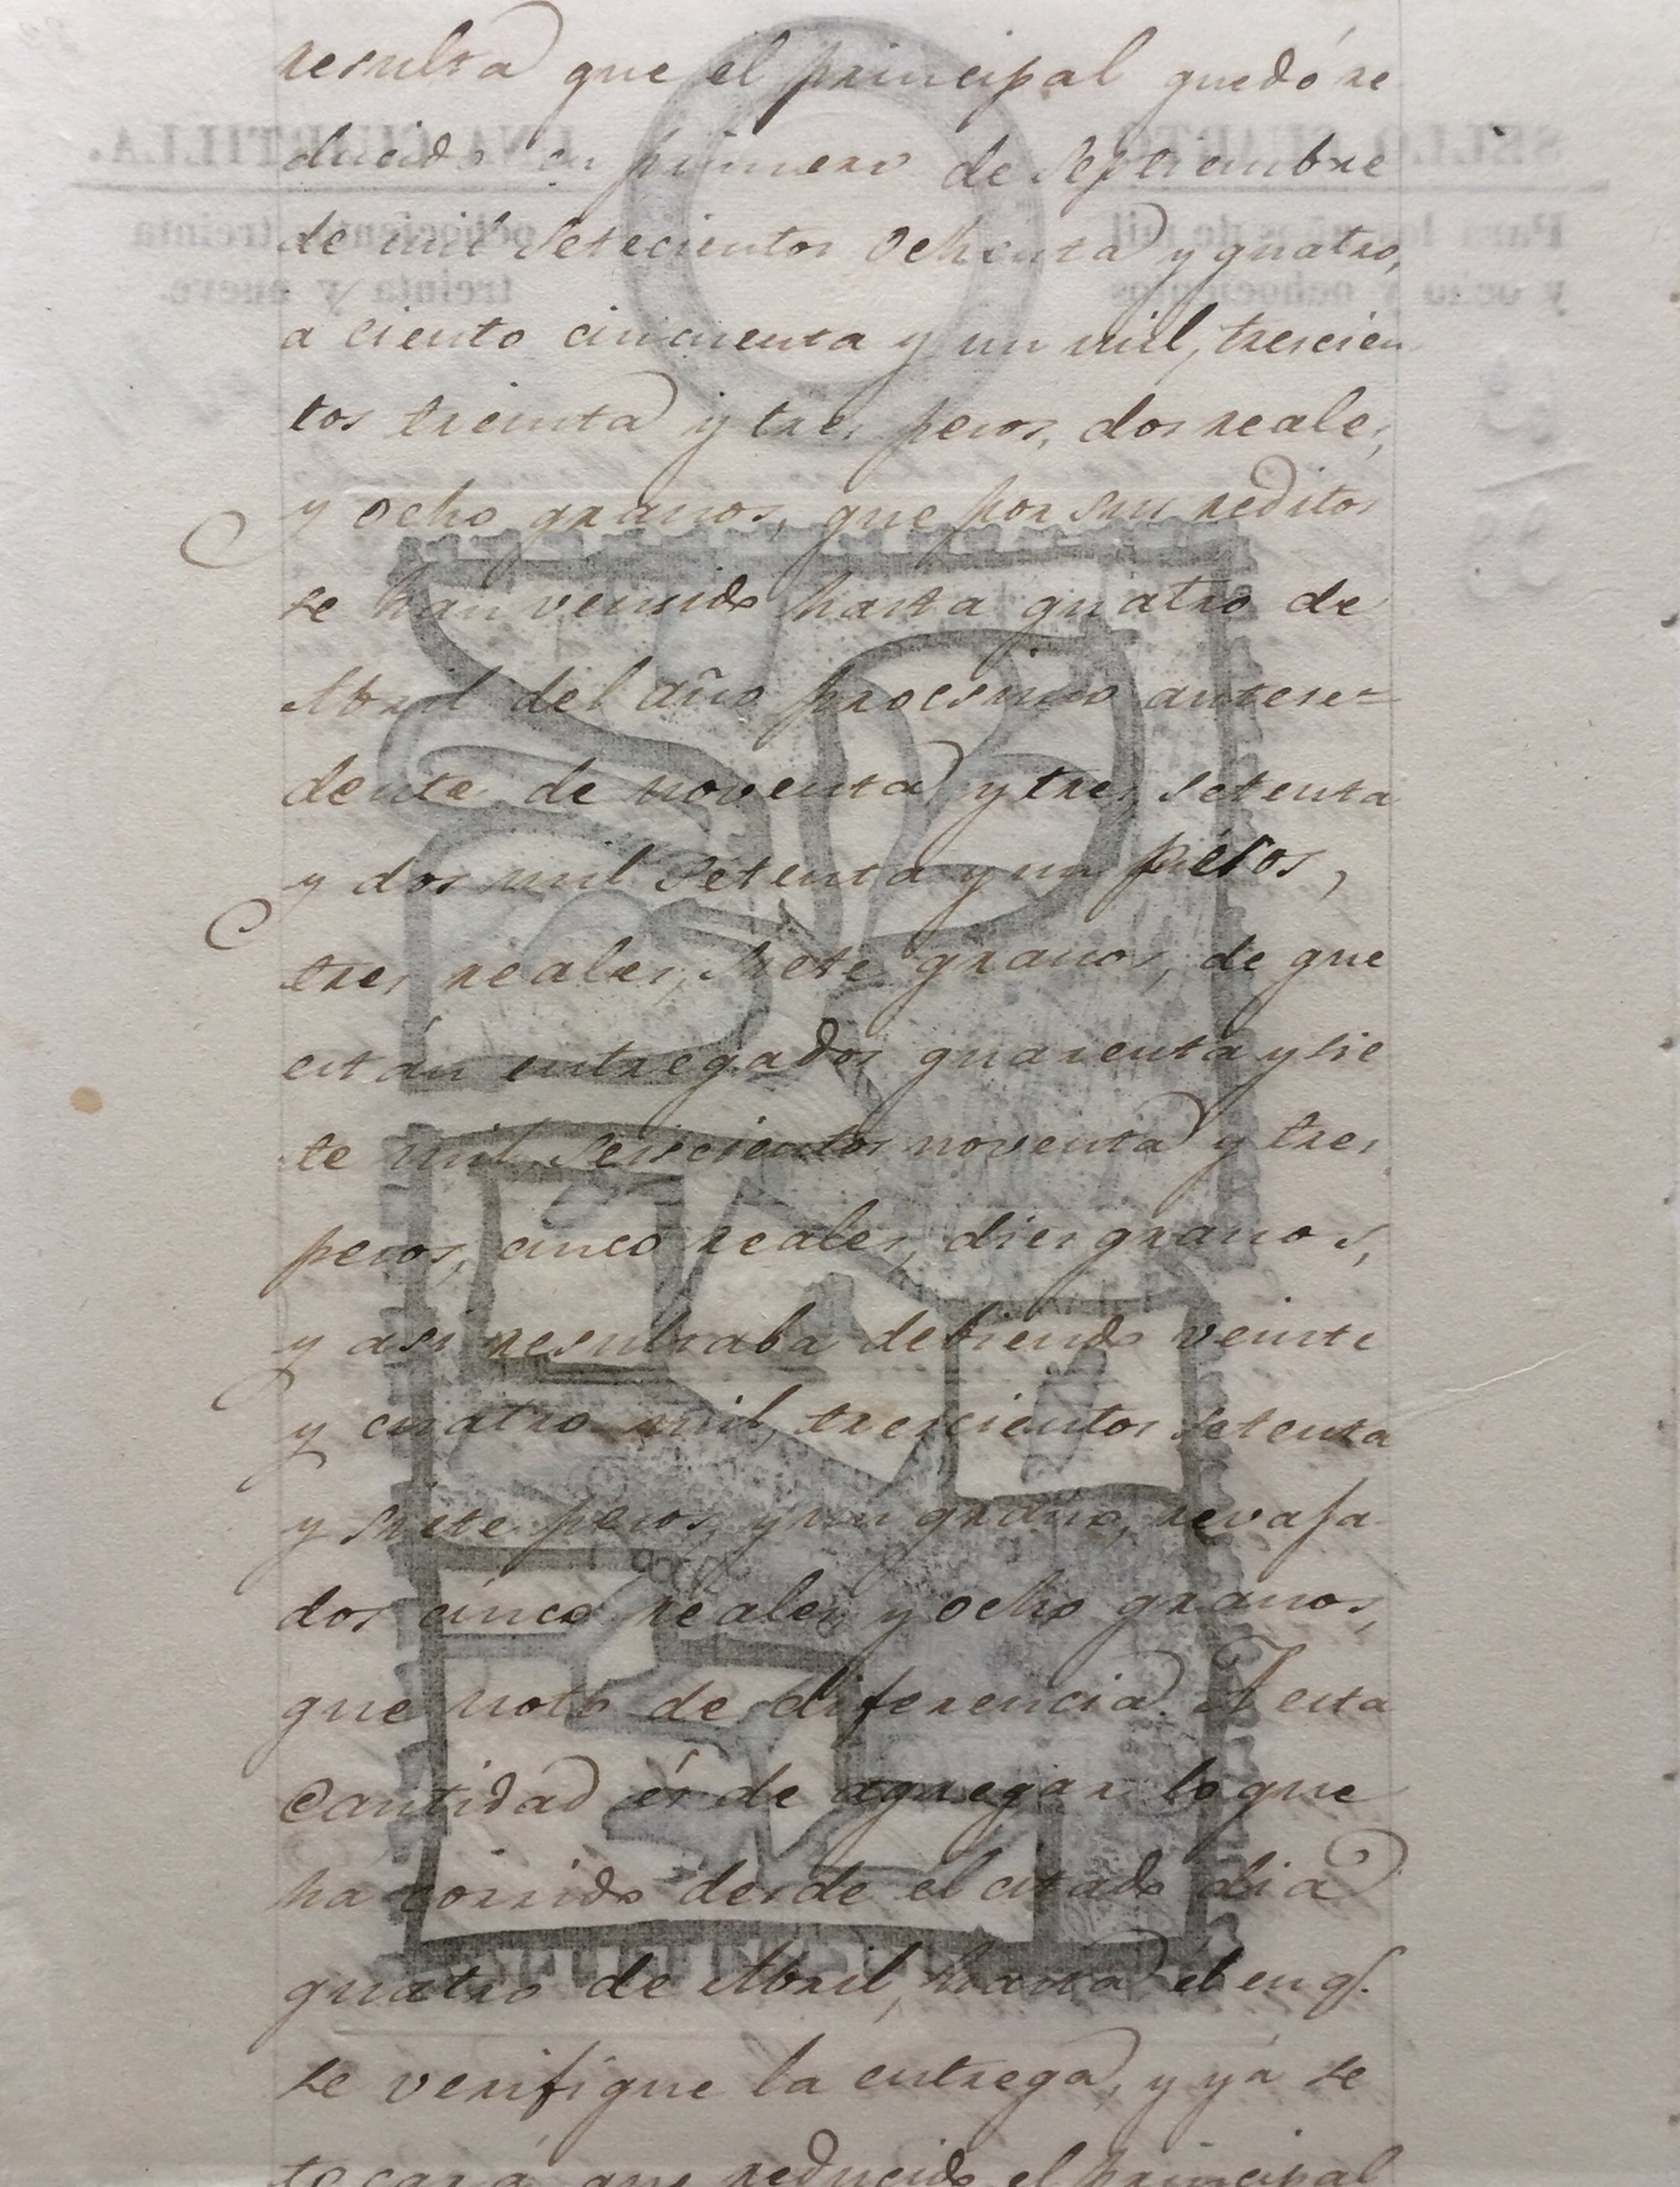 resulta que el principal quedó re
ducido en primero de Septiembre
de mil Setecientos Ochenta y quatro,
a ciento cincuenta y un mil, trescien
tos treinta y tres pesos, dos reales,
y ocho granos, que por sus reditos
se han vensido hasta quatro de
Abril del año procsimo antese=
dente de noventa y tres setenta
y dos mil Setenta y un pesos,
tres reales, siete granos, de que
están entregados quarenta y sie
te mil, Seiscientos noventa y tres
pesos, cinco reales, dies granos,
y asi resultaba debiendo veinte
y cuatro mil, trescientos setenta
y siete pesos, y un grano, revaja
dos cinco reales y ocho granos,
que noto de diferencia. A esta
Cantidad és de agregar lo que
há corrido desde el citado dia
quatro de Abril, hasta él en q.
se verifique la entrega, y yá se
tocará, que reducido el principal
SELLO CUARTO
UNA CUARTILLA.
Para los años de mil
ochocientos treinta
y ocho y ochocientos
treinta y nueve.